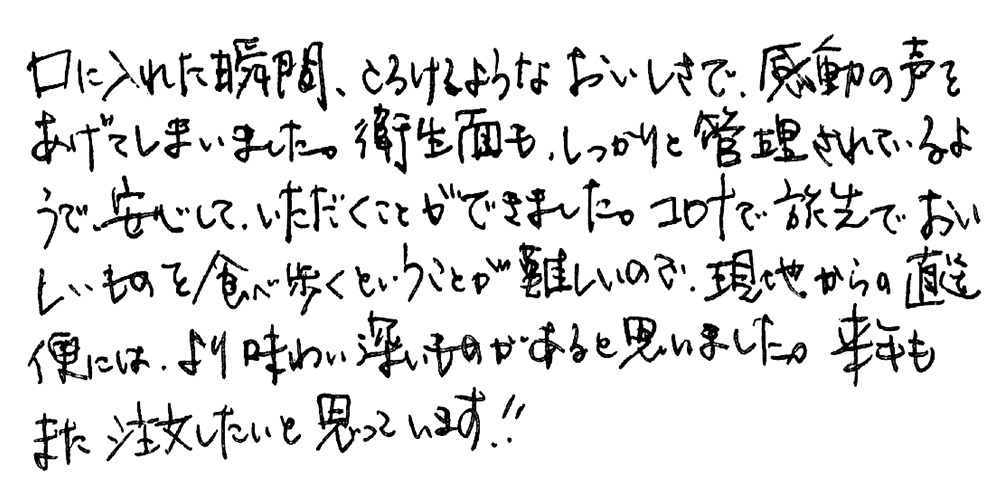 口に入れた瞬間、とろけるようなおいしさで、感動の声を
あげてしまいました。衛生面も、しっかりと管理されているよ
うで、安心して、いただくことができました。コロナで旅先でおい
しいものを食べ歩くということが難しいので、現地からの直送
便には、より味わい深いものがあると思いました。来年も
また注文したいと思っています!!